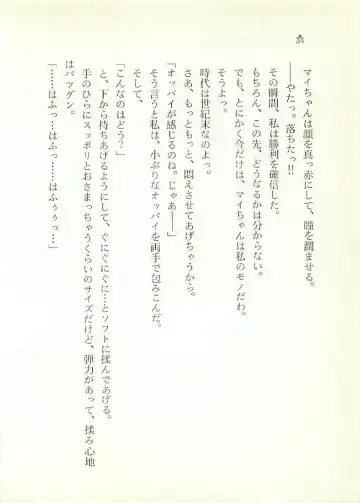 マイちゃんは顔を真っ赤にして、瞳を潤ませる。
――やたっ。落ちたっ!!
その瞬間、私は勝利を確信した。
もちろん、この先、どうなるかは分からない。
でも、とにかく今だけは、マイちゃんは私のモノだわ。
そうよっ。
時代は世紀末なのよっ。
さあ、もっともっと、悶えさせてあげちゃうから。
「オッパイが感じるのね。じゃあ――」
そう言うと私は、小ぶりなオッパイを両手で包みこんだ。
そして、
「こんなのはどう？」
と、下から持ちあげるようにして、ぐにぐにぐに…とソフトに揉んであげる。
手のひらにスッポリとおさまっちゃうくらいのサイズだけど、弾力があって、揉み心地
はバツグン。
「……はふっ…はふっ……はふぅぅっ…」